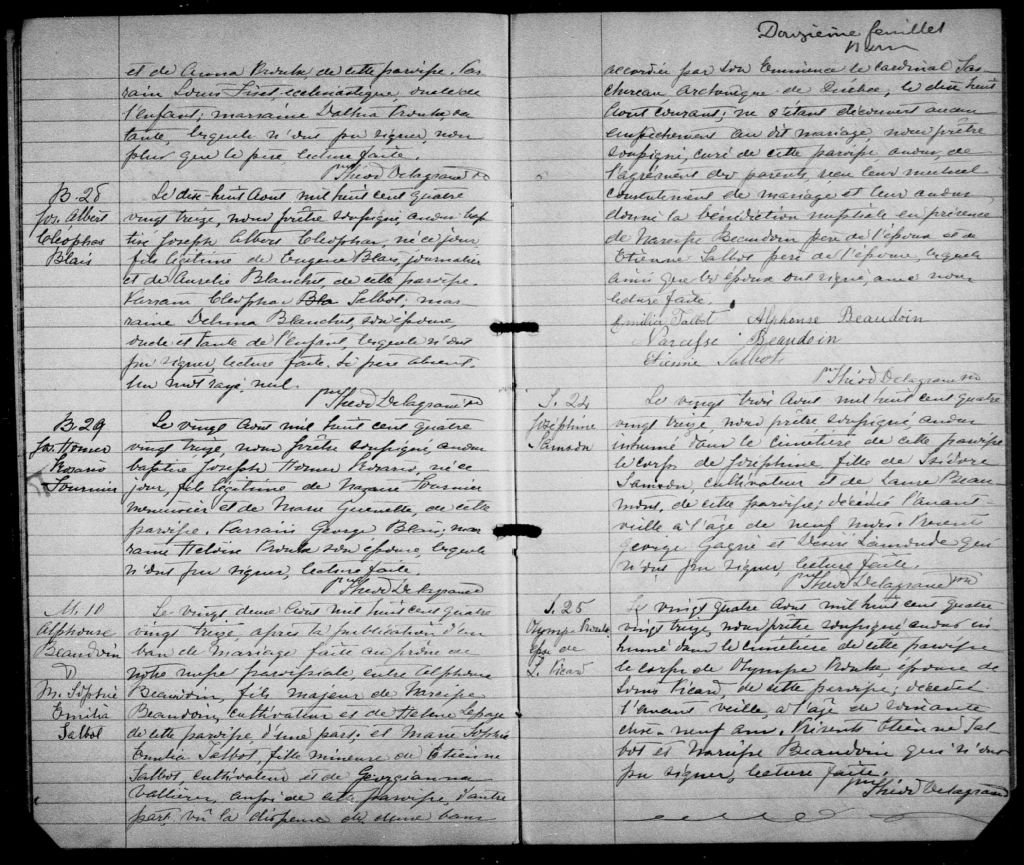 et de Anna Proulx de cette paroisse. Par-
rain Louis Lizet, ecclésiastique, oncle de
l'enfant; marraine Dalhia Proulx sa
tante, lesquels n'ont pu signer, non
plus que le père, lecture faite.
ptre Théod Delagrave
B. 28
Jos. Albert
Cléophas
Blais
Le dix-huit Aout mil huit cent quatre
vingt treize, nous prêtre soussigné, avons bap-
tisé Joseph Albert Cléophas, né ce jour,
fils légitime de Eugène Blais, journalier
et de Aurelie Blanchet, de cette paroisse.
Parrain Cléophas Bla Talbot; mar-
raine Delima Blanchet, son épouse,
oncle et tante de l'enfant, lesquels n'ont
pu signer, lecture faite. Le père absent.
Un mot rayé nul.
Théod Delagrave ptre
B. 29
Jos. Homer
Rosario
Fournier
Le vingt Aout mil huit cent quatre
vingt treize, nous prêtre soussigné, avons
baptisé Joseph Homer Rosario, né ce
jour, fils légitime de Nazaire Fournier
menuisier et de Marie Guenette, de cette
paroisse. Parrain George Blais; mar-
raine Héloise Proulx son épouse, lesquels
n'ont pu signer, lecture faite
Théod Delagrave
M. 10
Alphonse
Beaudoin
&
M. Sophie
Emilia
Talbot
Le vingt deux Aout mil huit cent quatre
vingt treize, après la publication d'un
ban de mariage faite au prône de
notre messe paroissiale, entre Alphonse
Beaudoin, fils majeur de Narcisse
Beaudoin, cultivateur et de Helene Lepage
de cette paroisse d'une part; et Marie Sophie
Emilia Talbot, fille mineure de Etienne
Talbot, cultivateur et de Georgianna
Vallières, aussi de cette paroisse, d'autre
part, vû la dispense de deux bans
Douzième feuillet
accordée par Son Eminence le Cardinal Tas-
chereau Archevêque de Québec, le dix huit
Aout courant; ne s'étant découvert aucun
empêchement au dit mariage, nous prêtre
soussigné, curé de cette paroisse, avons, de
l'agrément des parents, reçu leur mutuel
consentement de mariage et leur avons
donné la bénédiction nuptiale en présence
de Narcisse Beaudoin père de l'époux et de
Etienne Talbot père de l'épouse, lesquels
ainsi que les époux ont signé, avec nous
lecture faite.
Emilia Talbot Alphonse Beaudoin
Narcisse Beaudoin
Etienne Talbot
Théod Delagrave ptre
S. 24
Joséphine
Samson
Le vingt trois Aout mil huit cent quatre
vingt treize, nous prêtre soussigné avons
inhumé dans le cimetière de cette paroisse
le corps de Joséphine, fille de Isidore
Samson, cultivateur et de Laure Beau-
mont, de cette paroisse; décédée l'avant
veille à l'âge de neuf mois. Présent
George Gagné et Désiré Lamonde qui
n'ont pu signer, lecture faite.
Théod Delagrave ptre
S. 25
Olympe Proulx
épse de
L. Picard
Le vingt quatre Aout mil huit cent quatre
vingt treize, nous prêtre soussigné avons in-
humé dans le cimetière de cette paroisse
le corps de Olympe Proulx, épouse de
Louis Picard, de cette paroisse; décédée
l'avant veille, à l'âge de soixante
dix-neuf ans. Présents Etienne Tal-
bot et Narcisse Beaudoin qui n'ont
pu signer, lecture faite.
ptre Théod Delagrave